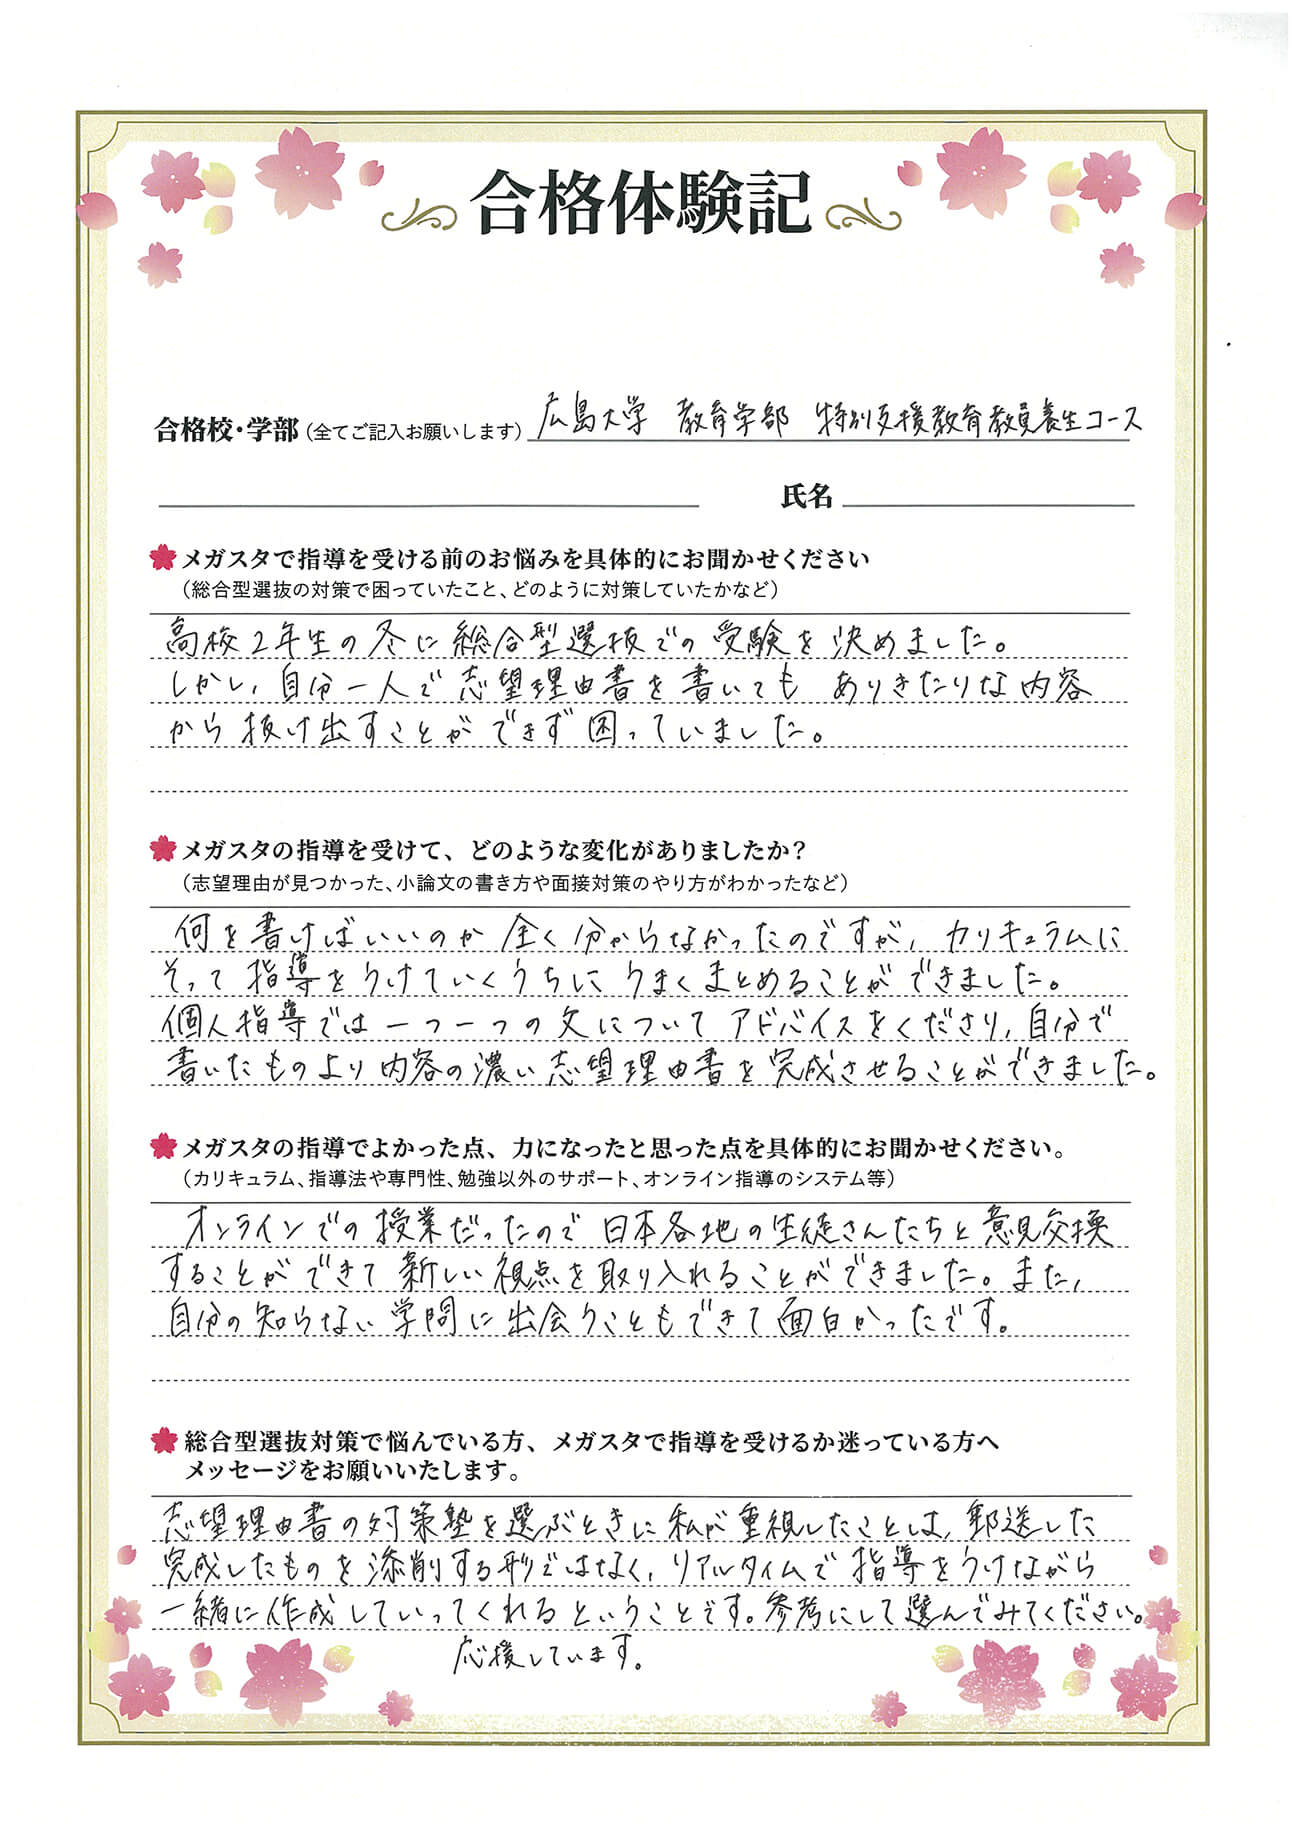 合格体験記
合格校・学部（全てご記入お願いします）広島大学 教育学部 特別支援教育教員養生コース
氏名
メガスタで指導を受ける前のお悩みを具体的にお聞かせください
（総合型選抜の対策で困っていたこと、どのように対策していたかなど）
高校2年生の冬に総合型選抜での受験を決めました。
しかし、自分一人で志望理由書を書いても ありきたりな内容
から抜け出すことができず困っていました。
メガスタの指導を受けて、どのような変化がありましたか？
（志望理由が見つかった、小論文の書き方や面接対策のやり方がわかったなど）
何を書けばいいのか全く分からなかったのですが、カリキュラムに
そって指導をうけていくうちにうまくまとめることができました。
個人指導では一つ一つの文についてアドバイスをくださり、自分で
書いたものより内容の濃い志望理由書を完成させることができました。
メガスタの指導でよかった点、力になったと思った点を具体的にお聞かせください。
（カリキュラム、指導法や専門性、勉強以外のサポート、オンライン指導のシステム等）
オンラインでの授業だったので日本各地の生徒さんたちと意見交換
することができて新しい視点を取り入れることができました。また、
自分の知らない学問に出会うこともできて面白かったです。
総合型選抜対策で悩んでいる方、メガスタで指導を受けるか迷っている方へ
メッセージをお願いいたします。
志望理由書の対策塾を選ぶときに私が重視したことは、郵送した
完成したものを添削する形ではなく、リアルタイムで指導をうけながら
一緒に作成していってくれるということです。参考にして選んでみてください。
応援しています。